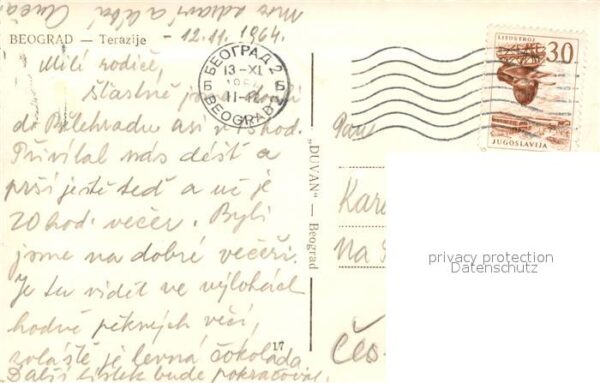 BEOGRAD — Terazije - 12.11.1964.
Milí rodiče,
šťastně jsme
do Bělehradu asi v hod.
Přivítal nás déšť a
prší ještě teď a už je
20 hod. večer. Byli
jsme na dobré večeři.
Je tu vidět ve výlohách
hodně pěkných věcí,
zvláště je levná čokoláda.
Další lístek bude pokračovat.
Mnoho zdraví a líbá
БЕОГРАД 2
13-XI
11-12
BEOGRAD 2
LITOSTROJ
30
JUGOSLAVIJA
„DUVAN" — Beograd
17
Pan
Kar
Na
Čes
privacy protection
Datenschutz